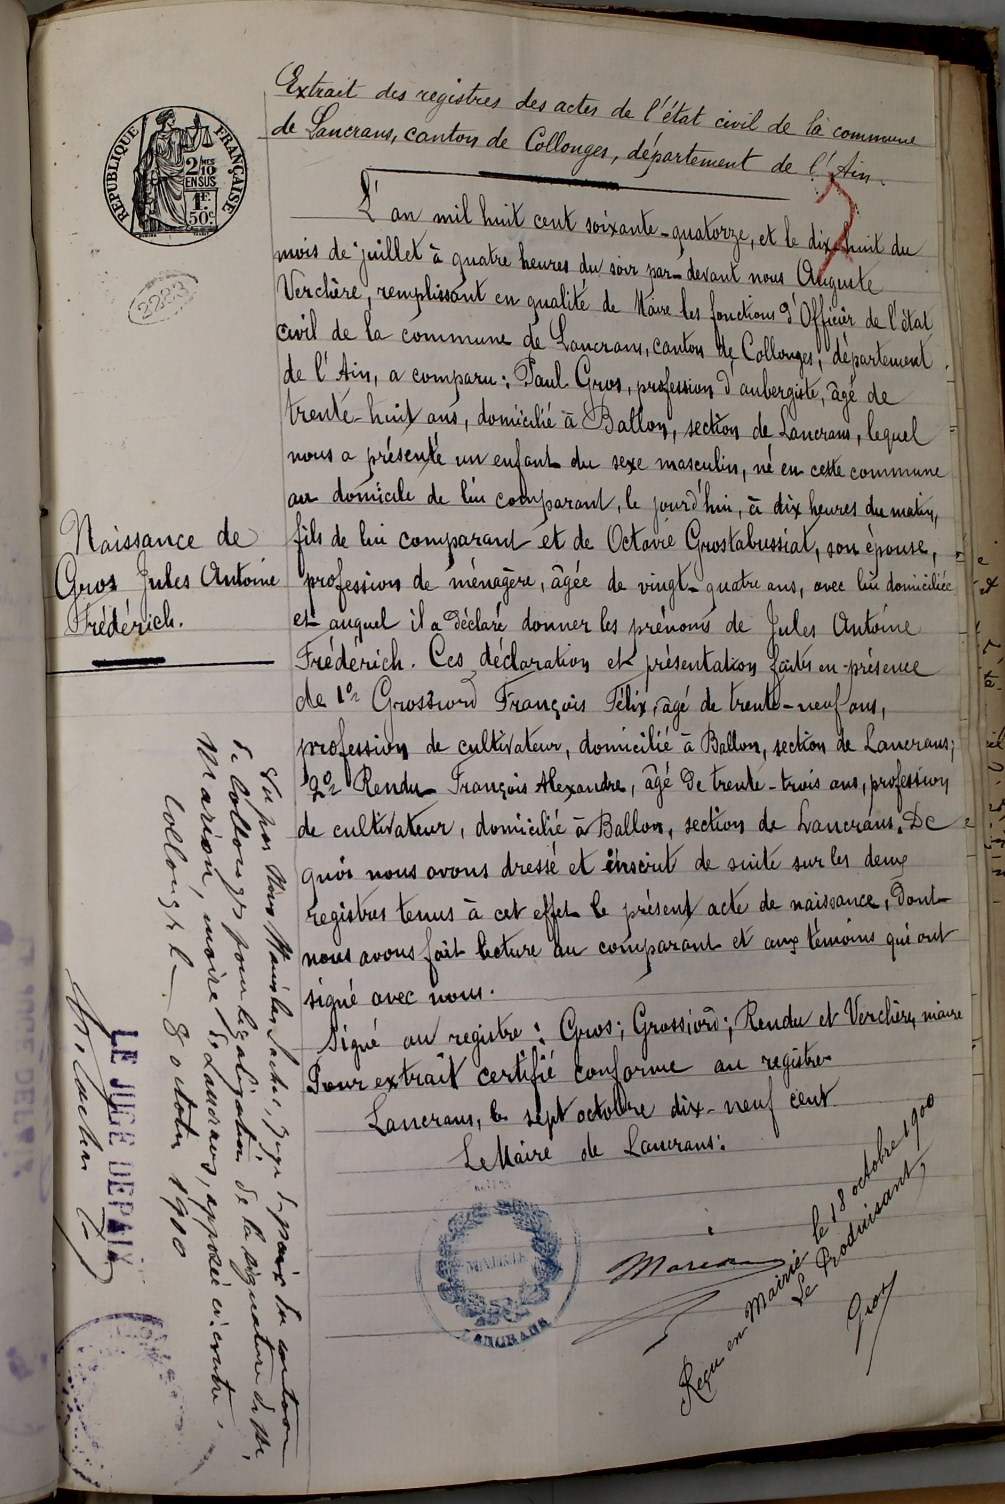 Extrait des registres des actes de l'état civil de la commune
de Lancrans, canton de Collonges, département de l'Ain.
RÉPUBLIQUE FRANÇAISE
2/10mes
EN SUS
1F.
50c.
2283
2
L'an mil huit cent soixante-quatorze, et le dix-huit du
mois de juillet à quatre heures du soir par-devant nous Auguste
Verchère, remplissant en qualité de Maire les fonctions d'Officier de l'état
civil de la commune de Lancrans, canton de Collonges, département
de l'Ain, a comparu: Paul Gros, profession d'aubergiste, âgé de
trente-huit ans, domicilié à Ballon, section de Lancrans, lequel
nous a présenté un enfant du sexe masculin, né en cette commune
au domicile de lui comparant, le jourd'hui, à dix heures du matin,
fils de lui comparant et de Octavie Grostabussiat, son épouse,
profession de ménagère, âgée de vingt-quatre ans, avec lui domiciliée
et auquel il a déclaré donner les prénoms de Jules Antoine
Frédérich. Ces déclaration et présentation faites en présence
de 1° Grossiord François Félix, âgé de trente-neuf ans,
profession de cultivateur, domicilié à Ballon, section de Lancrans;
2° Rendu François Alexandre, âgé de trente-trois ans, profession
de cultivateur, domicilié à Ballon, section de Lancrans. De
quoi nous avons dressé et inscrit de suite sur les deux
registres tenus à cet effet le présent acte de naissance, dont
nous avons fait lecture au comparant et aux témoins qui ont
signé avec nous.
Signé au registre: Gros; Grossiord; Rendu et Verchère, maire
Pour extrait certifié conforme au registre
Lancrans, le sept octobre dix-neuf cent
Le Maire de Lancrans:
MAIRIE
LANCRANS
Marion
Reçu en Mairie le 18 octobre 1900
Le Produisant,
Gros
Naissance de
Gros Jules Antoine
Frédérich.
Vu par Nous juge de paix du canton
de Collonges pour légalisation de la signature de Mr
Marion, maire de Lancrans, apposée ci-contre.
Collonges le 8 octobre 1900
LE JUGE DE PAIX